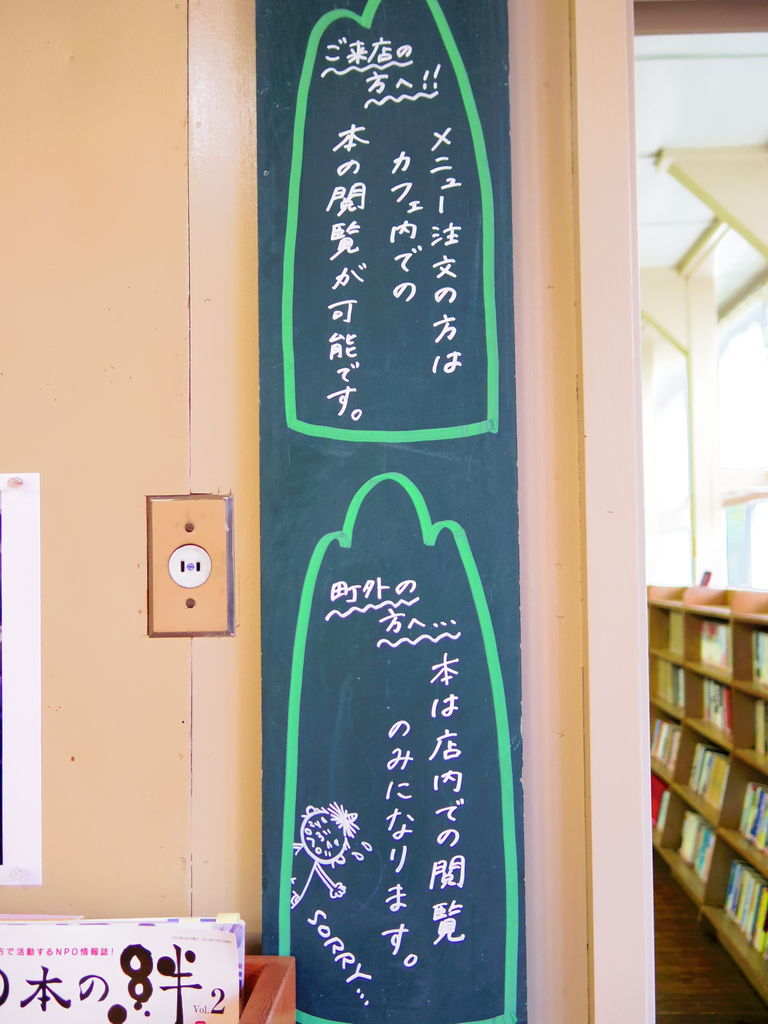 ご来店の
方へ!!
メニュー注文の方は
カフェ内での
本の閲覧が可能です。
町外の
方へ...
本は店内での閲覧
のみになります。
SORRY...
方で活動するNPO情報誌!
本の絆
Vol.2